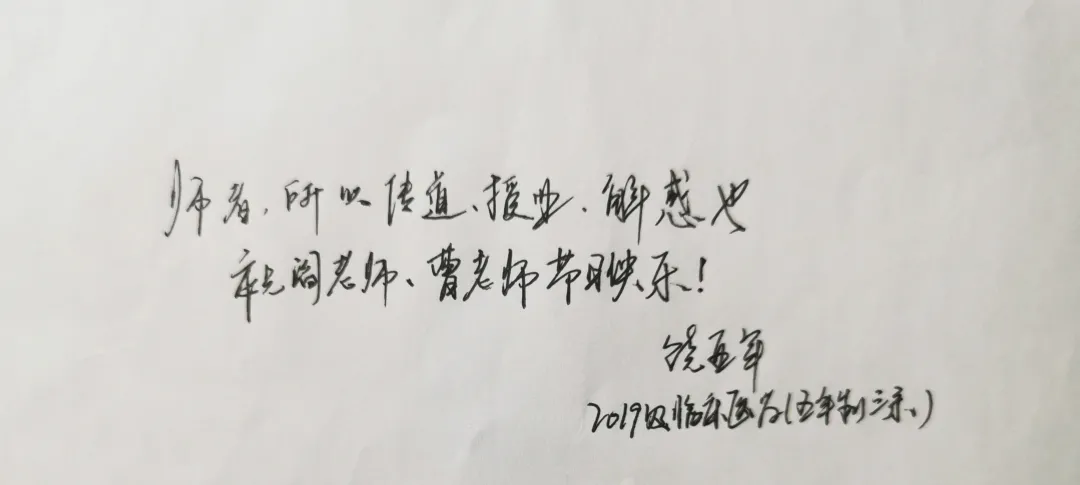 师者,所以传道、授业、解惑也
祝阎老师、曹老师节日快乐!
饶五军
2019级临床医学(五年制三系)